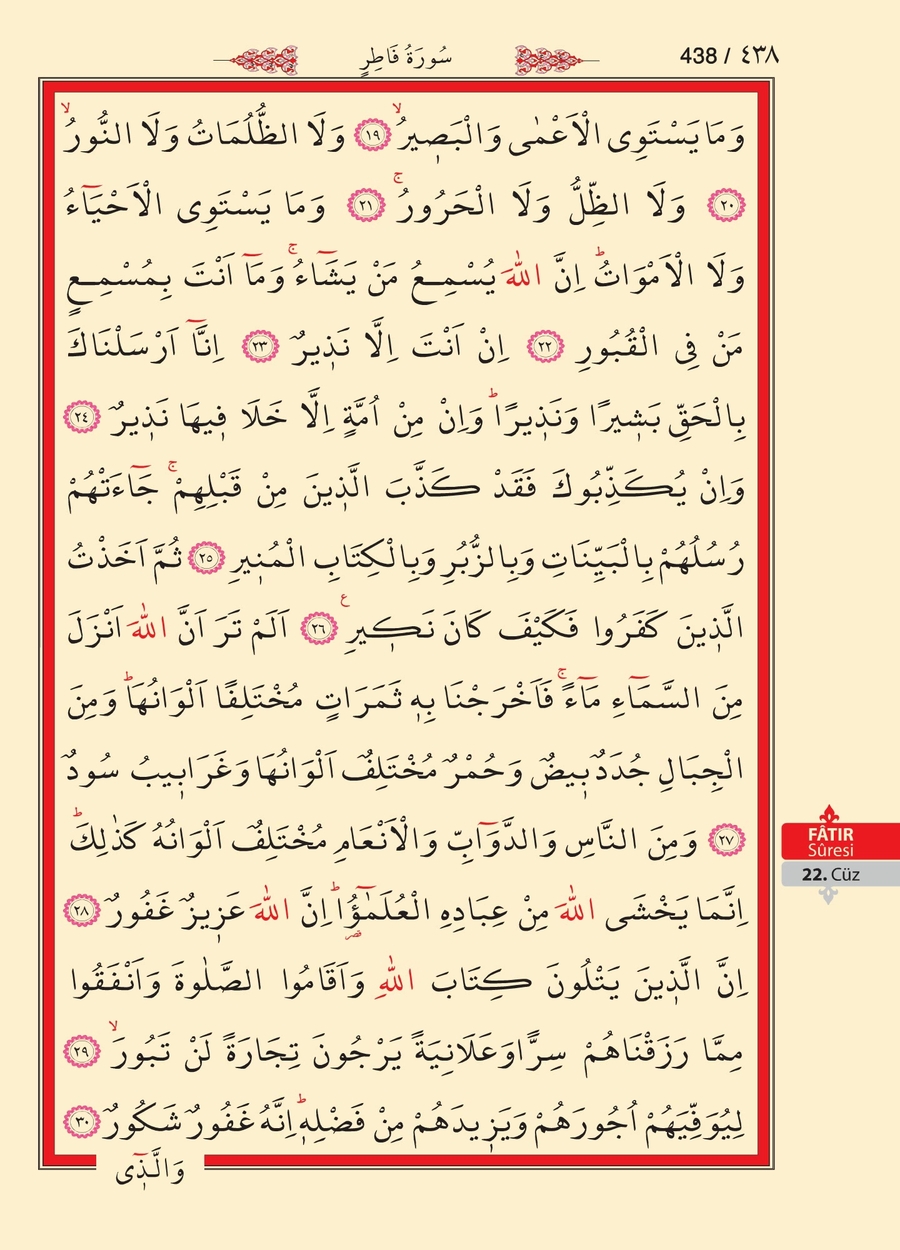 438 / ٤٣٨
سُورَةُ فَاطِرٍ
وَمَا يَسْتَوِى الْاَعْمٰى وَالْبَص۪يرُۙ ﴿١٩﴾ وَلَا الظُّلُمَاتُ وَلَا النُّورُۙ
﴿٢٠﴾ وَلَا الظِّلُّ وَلَا الْحَرُورُۚ ﴿٢١﴾ وَمَا يَسْتَوِى الْاَحْيَٓاءُ
وَلَا الْاَمْوَاتُۜ اِنَّ اللّٰهَ يُسْمِعُ مَنْ يَشَٓاءُۚ وَمَٓا اَنْتَ بِمُسْمِعٍ
مَنْ فِى الْقُبُورِ ﴿٢٢﴾ اِنْ اَنْتَ اِلَّا نَذ۪يرٌ ﴿٢٣﴾ اِنَّٓا اَرْسَلْنَاكَ
بِالْحَقِّ بَش۪يرًا وَنَذ۪يرًاۜ وَاِنْ مِنْ اُمَّةٍ اِلَّا خَلَا ف۪يهَا نَذ۪يرٌ ﴿٢٤﴾
وَاِنْ يُكَذِّبُوكَ فَقَدْ كَذَّبَ الَّذ۪ينَ مِنْ قَبْلِهِمْۚ جَٓاءَتْهُمْ
رُسُلُهُمْ بِالْبَيِّنَاتِ وَبِالزُّبُرِ وَبِالْكِتَابِ الْمُن۪يرِ ﴿٢٥﴾ ثُمَّ اَخَذْتُ
الَّذ۪ينَ كَفَرُوا فَكَيْفَ كَانَ نَك۪يرِ۟ ﴿٢٦﴾ اَلَمْ تَرَ اَنَّ اللّٰهَ اَنْزَلَ
مِنَ السَّمَٓاءِ مَٓاءًۚ فَاَخْرَجْنَا بِه۪ ثَمَرَاتٍ مُخْتَلِفًا اَلْوَانُهَاۜ وَمِنَ
الْجِبَالِ جُدَدٌ ب۪يضٌ وَحُمْرٌ مُخْتَلِفٌ اَلْوَانُهَا وَغَرَاب۪يبُ سُودٌ
﴿٢٧﴾ وَمِنَ النَّاسِ وَالدَّوَٓابِّ وَالْاَنْعَامِ مُخْتَلِفٌ اَلْوَانُهُ كَذٰلِكَۜ
اِنَّمَا يَخْشَى اللّٰهَ مِنْ عِبَادِهِ الْعُلَمٰٓؤُ۬اۜ اِنَّ اللّٰهَ عَز۪يزٌ غَفُورٌ ﴿٢٨﴾
اِنَّ الَّذ۪ينَ يَتْلُونَ كِتَابَ اللّٰهِ وَاَقَامُوا الصَّلٰوةَ وَاَنْفَقُوا
مِمَّا رَزَقْنَاهُمْ سِرًّا وَعَلَانِيَةً يَرْجُونَ تِجَارَةً لَنْ تَبُورَۙ ﴿٢٩﴾
لِيُوَفِّيَهُمْ اُجُورَهُمْ وَيَز۪يدَهُمْ مِنْ فَضْلِه۪ۜ اِنَّهُ غَفُورٌ شَكُورٌ ﴿٣٠﴾
وَالَّذ۪ٓى
FÂTIR
Sûresi
22. Cüz